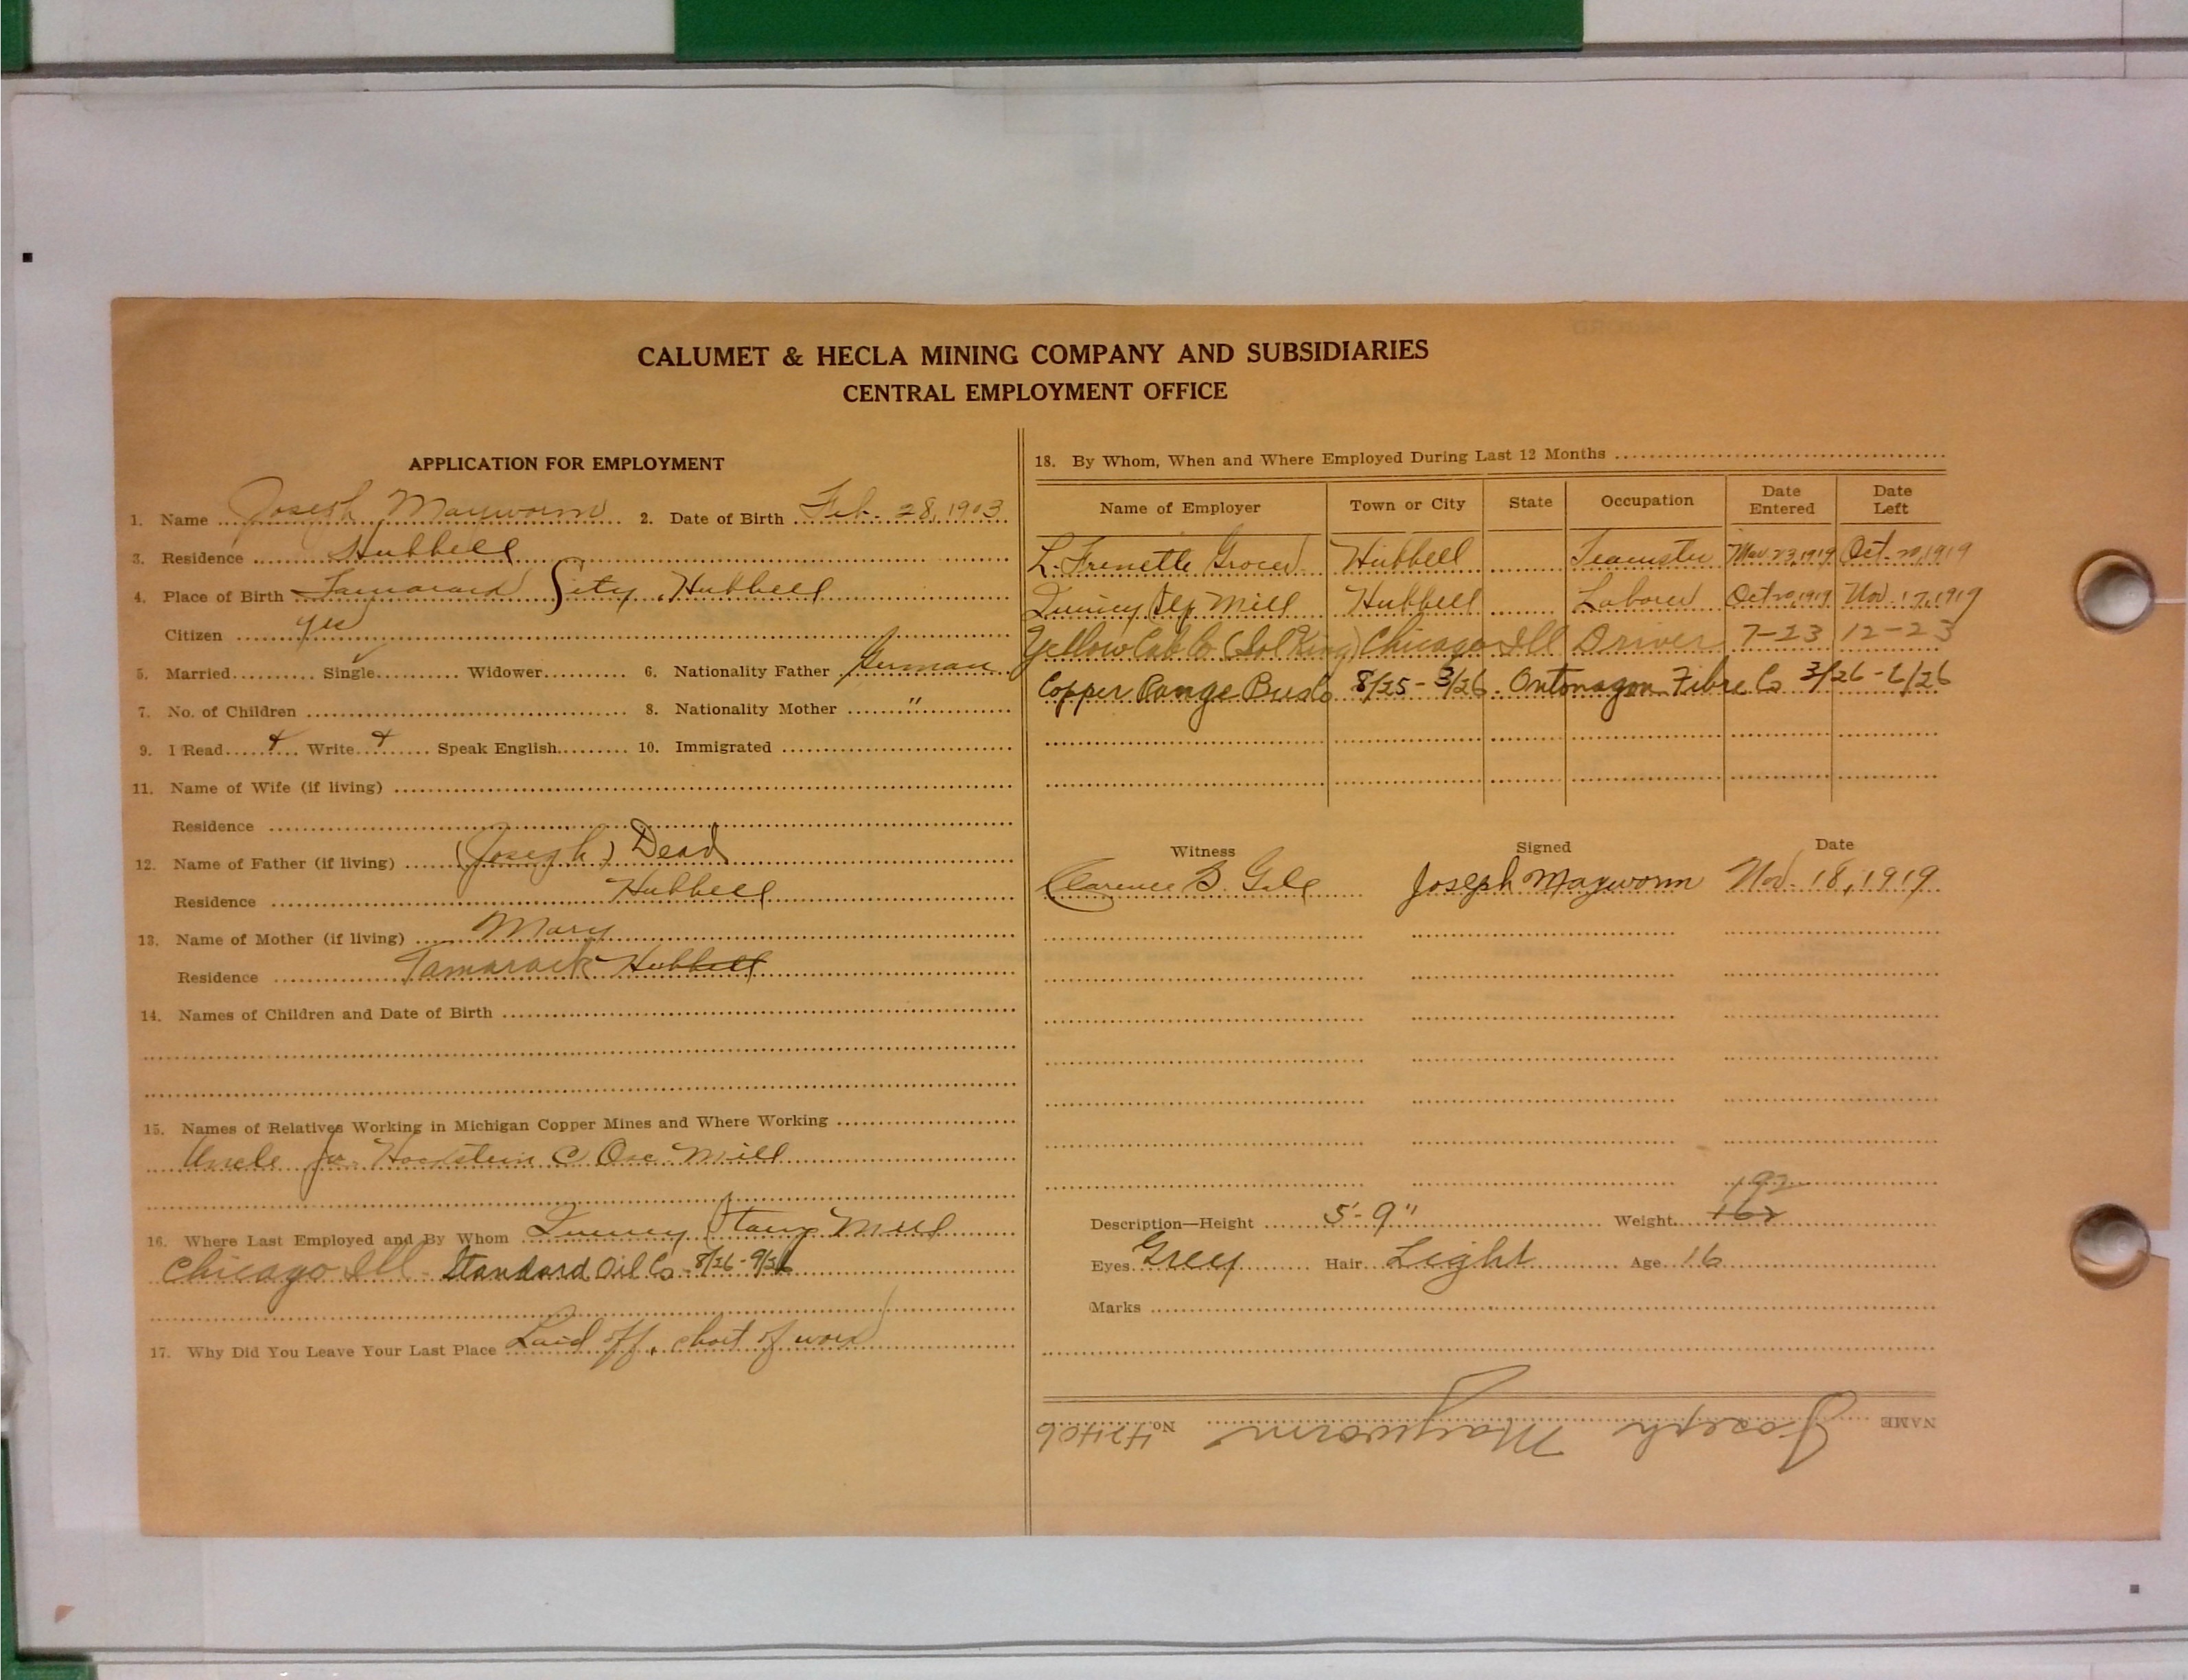 CALUMET & HECLA MINING COMPANY AND SUBSIDIARIES
CENTRAL EMPLOYMENT OFFICE
APPLICATION FOR EMPLOYMENT
1. Name Joseph Mayworm 2. Date of Birth Feb. 28, 1903
3. Residence Hubbell
4. Place of Birth Tamarack City, Hubbell
Citizen yes
5. Married Single ✓ Widower 6. Nationality Father German
7. No. of Children 8. Nationality Mother "
9. I Read Write Speak English 10. Immigrated
11. Name of Wife (if living)
Residence
12. Name of Father (if living) (Joseph) Dead
Residence Hubbell
13. Name of Mother (if living) Mary
Residence Tamarack Hubbell
14. Names of Children and Date of Birth
15. Names of Relatives Working in Michigan Copper Mines and Where Working
Uncle Mill
16. Where Last Employed and By Whom Quincy Stamp Mill
Chicago Ill - Standard Oil Co - 8/26 - 9/26
17. Why Did You Leave Your Last Place Laid off, short of work
18. By Whom, When and Where Employed During Last 12 Months
Name of Employer Town or City State Occupation Date Entered Date Left
L. Frenette Grocer Hubbell Teamster 23, 1919 Oct. 20, 1919
Quincy Mill Hubbell Laborer Oct 20, 1919 Nov 17, 1919
Yellow Cab Co (Sol King) Chicago Ill Driver 7-23 12-23
Copper Range Bus Co 8/25 - 3/26 - Ontonagon Fibre Co 3/26 - 6/26
Witness Signed Date
Clarence B. Gale Joseph Mayworm Nov. 18, 1919
192
Description—Height 5'-9" Weight 162
Eyes Grey Hair Light Age 16
Marks
NAME Joseph Mayworm No. 42406